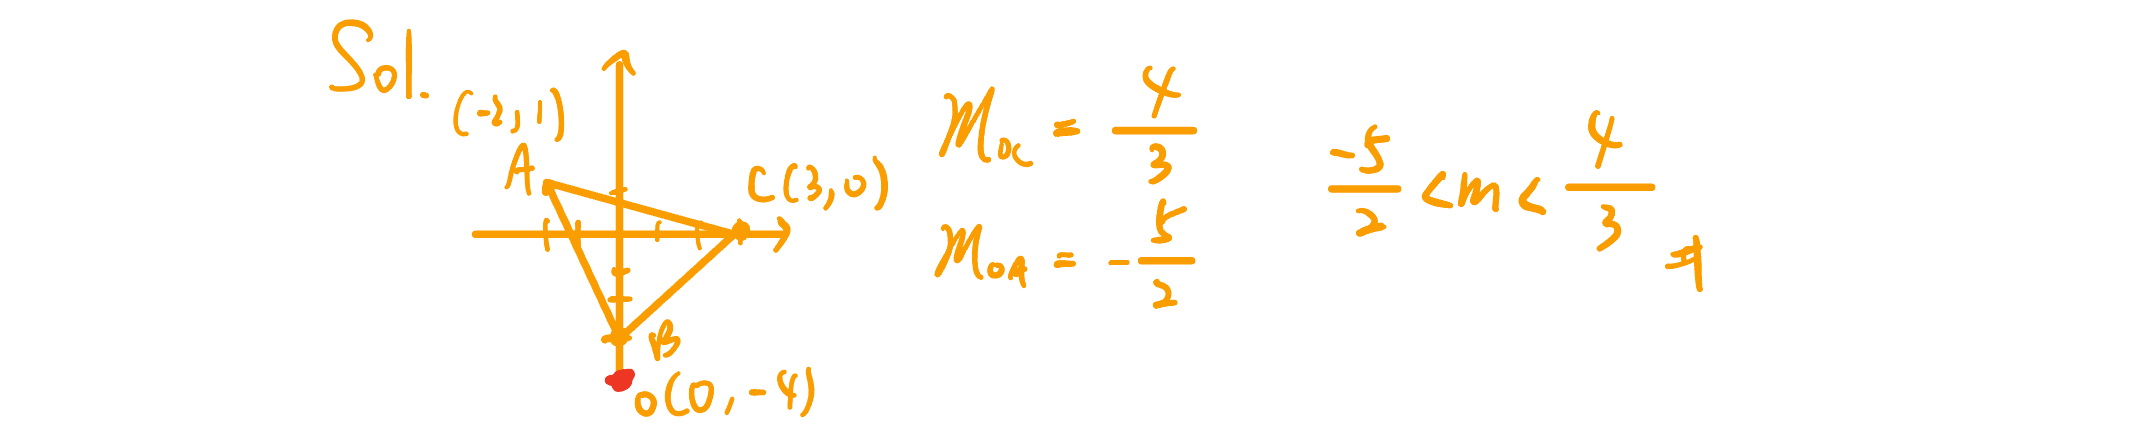 Sol.
(-2, 1)
A
C(3, 0)
B
O(0, -4)
m_OC = 4/3
m_OA = -5/2
-5/2 < m < 4/3 #